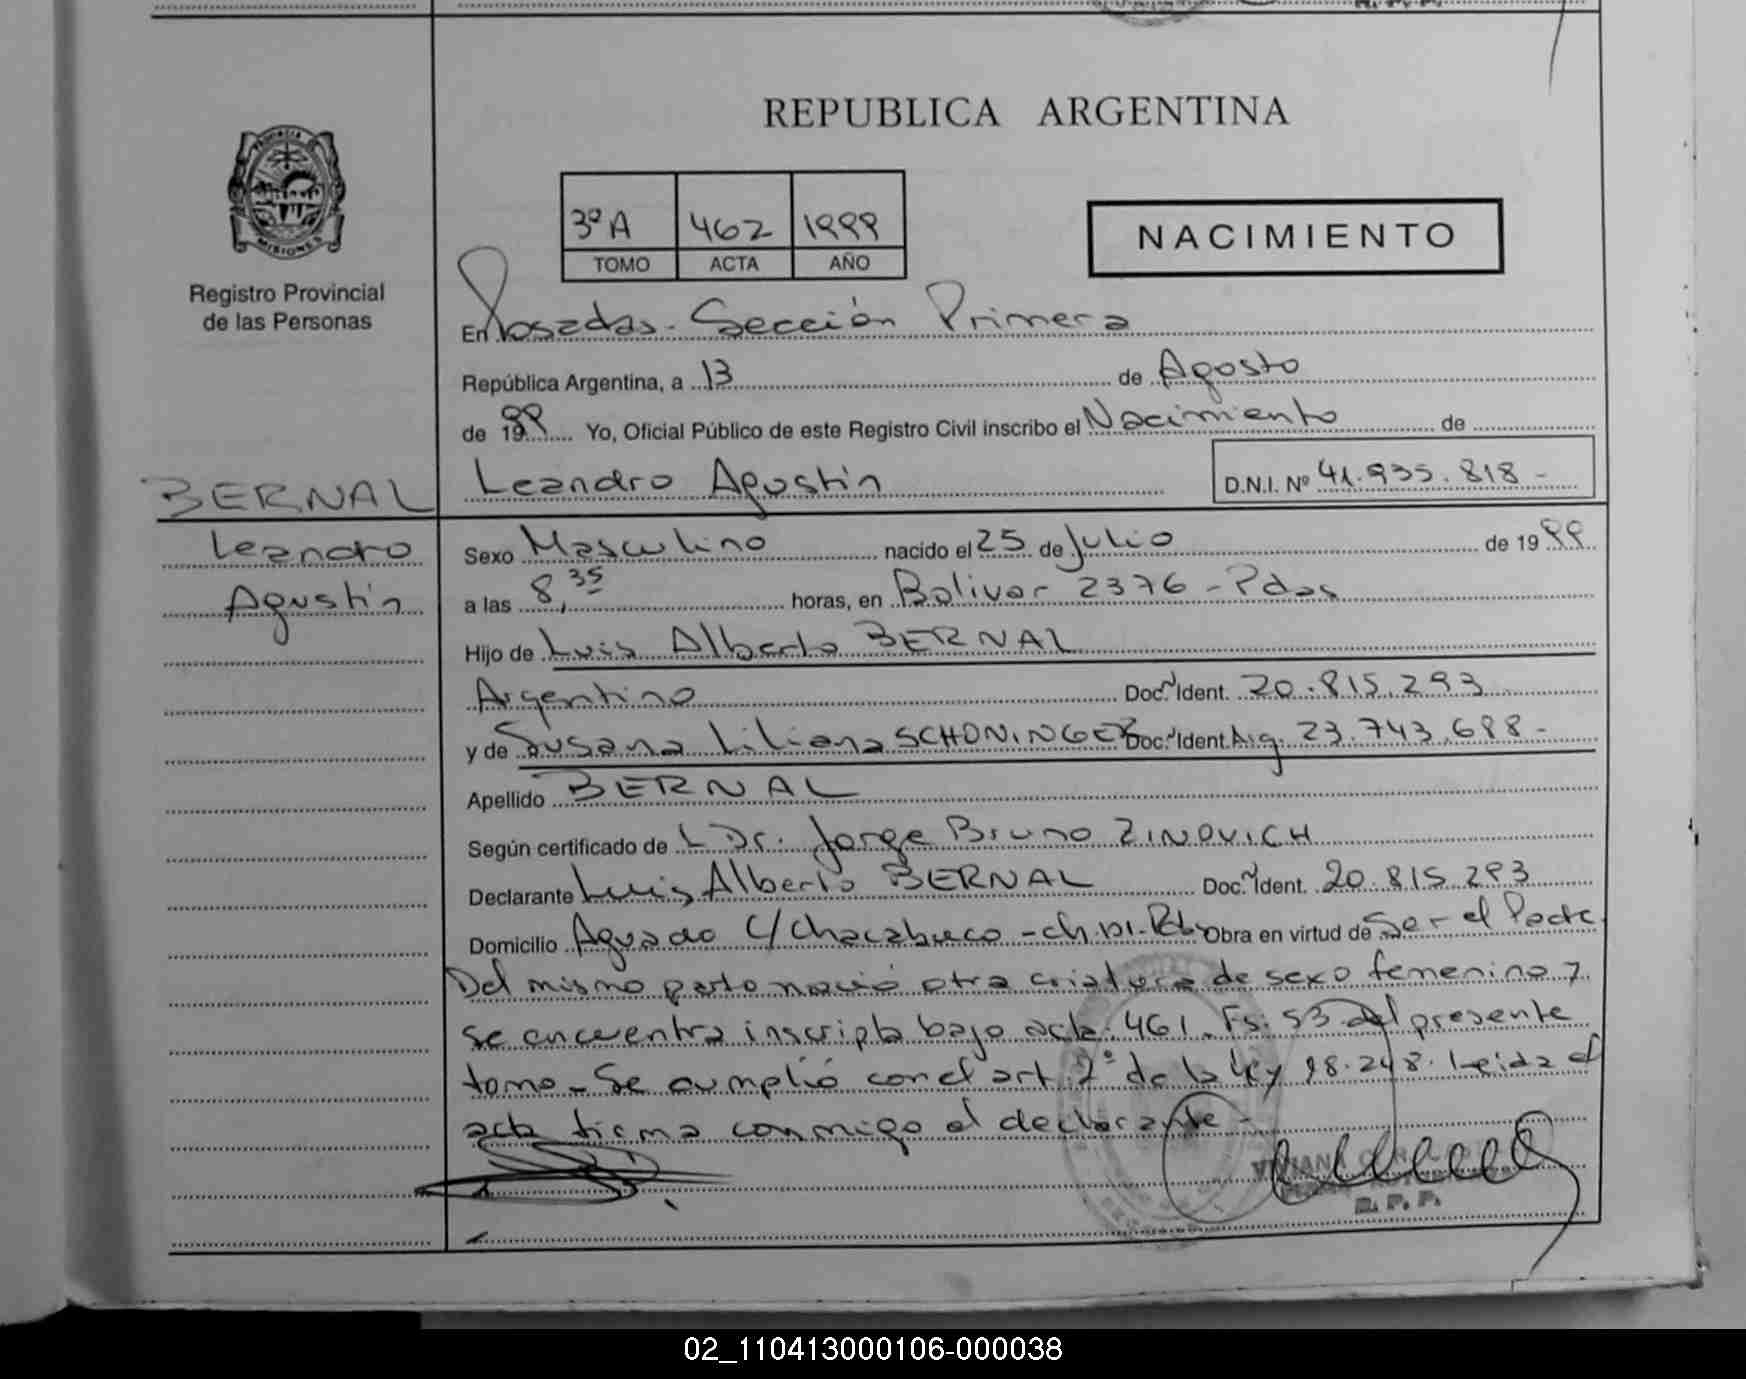 REPUBLICA ARGENTINA
PROVINCIA DE
MISIONES
Registro Provincial
de las Personas
3º A 462 1999
TOMO ACTA AÑO
NACIMIENTO
En Posadas - Sección Primera
República Argentina, a 13 de Agosto
de 1999 Yo, Oficial Público de este Registro Civil inscribo el Nacimiento de
Leandro Agustín D.N.I. Nº 41.935.818 -
BERNAL
Leandro
Agustín
Sexo Masculino nacido el 25 de Julio de 1999
a las 8,35 horas, en Bolivar 2376 - Pdas
Hijo de Luis Alberto BERNAL
Argentino Doc. Ident. 20.815.293
y de Susana Liliana SCHONINGER Doc. Ident. Arg. 23.743.688 -
Apellido BERNAL
Según certificado de L Dr. Jorge Bruno ZINOVICH
Declarante Luis Alberto BERNAL Doc. Ident. 20.815.293
Domicilio Aguado C/ Chacabuco - Obra en virtud de Ser el Padre
Del mismo parto nació otra criatura de sexo femenino y
se encuentra inscripta bajo acta: 461 - Fs: 53 del presente
tomo - Se cumplió con el art. 2º de la Ley 18.248. Leída el
acta firma conmigo el declarante -
R. P. P.
02_110413000106-000038